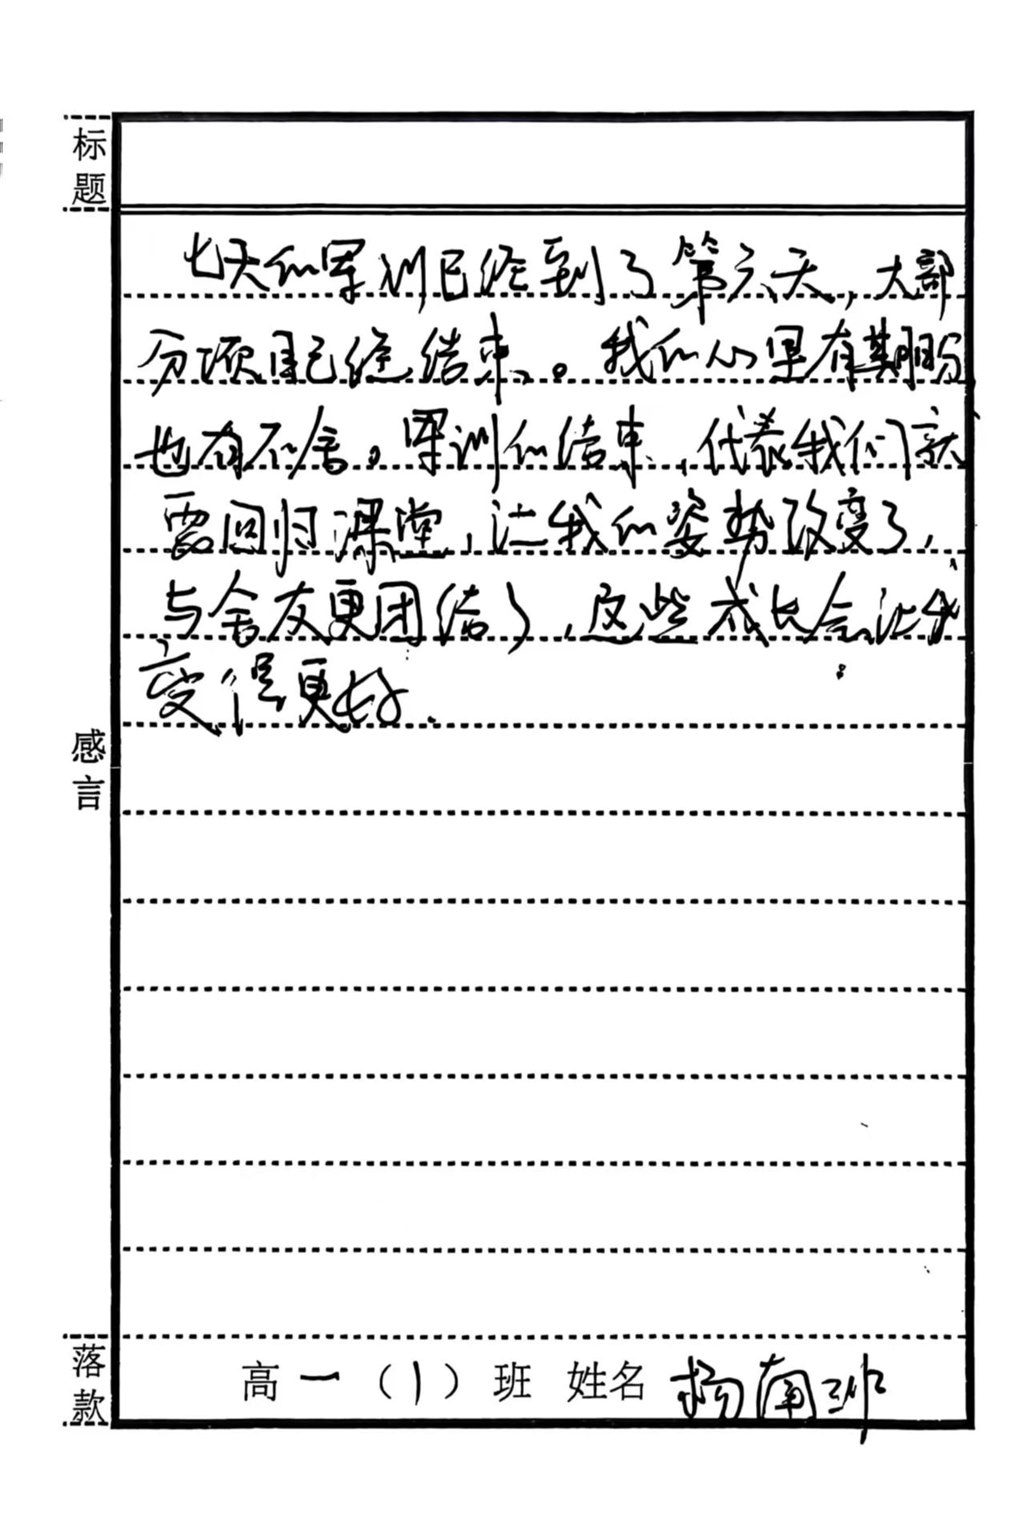 标题
七天的军训已经到了第六天，大部
分项目已经结束。我们心里有期盼
也有不舍。军训的结束，代表我们就
要回归课堂，让我的姿势改变了，
与舍友更团结了，这些成长会让我
变得更好.
感言
落款
高一（1）班 姓名 杨